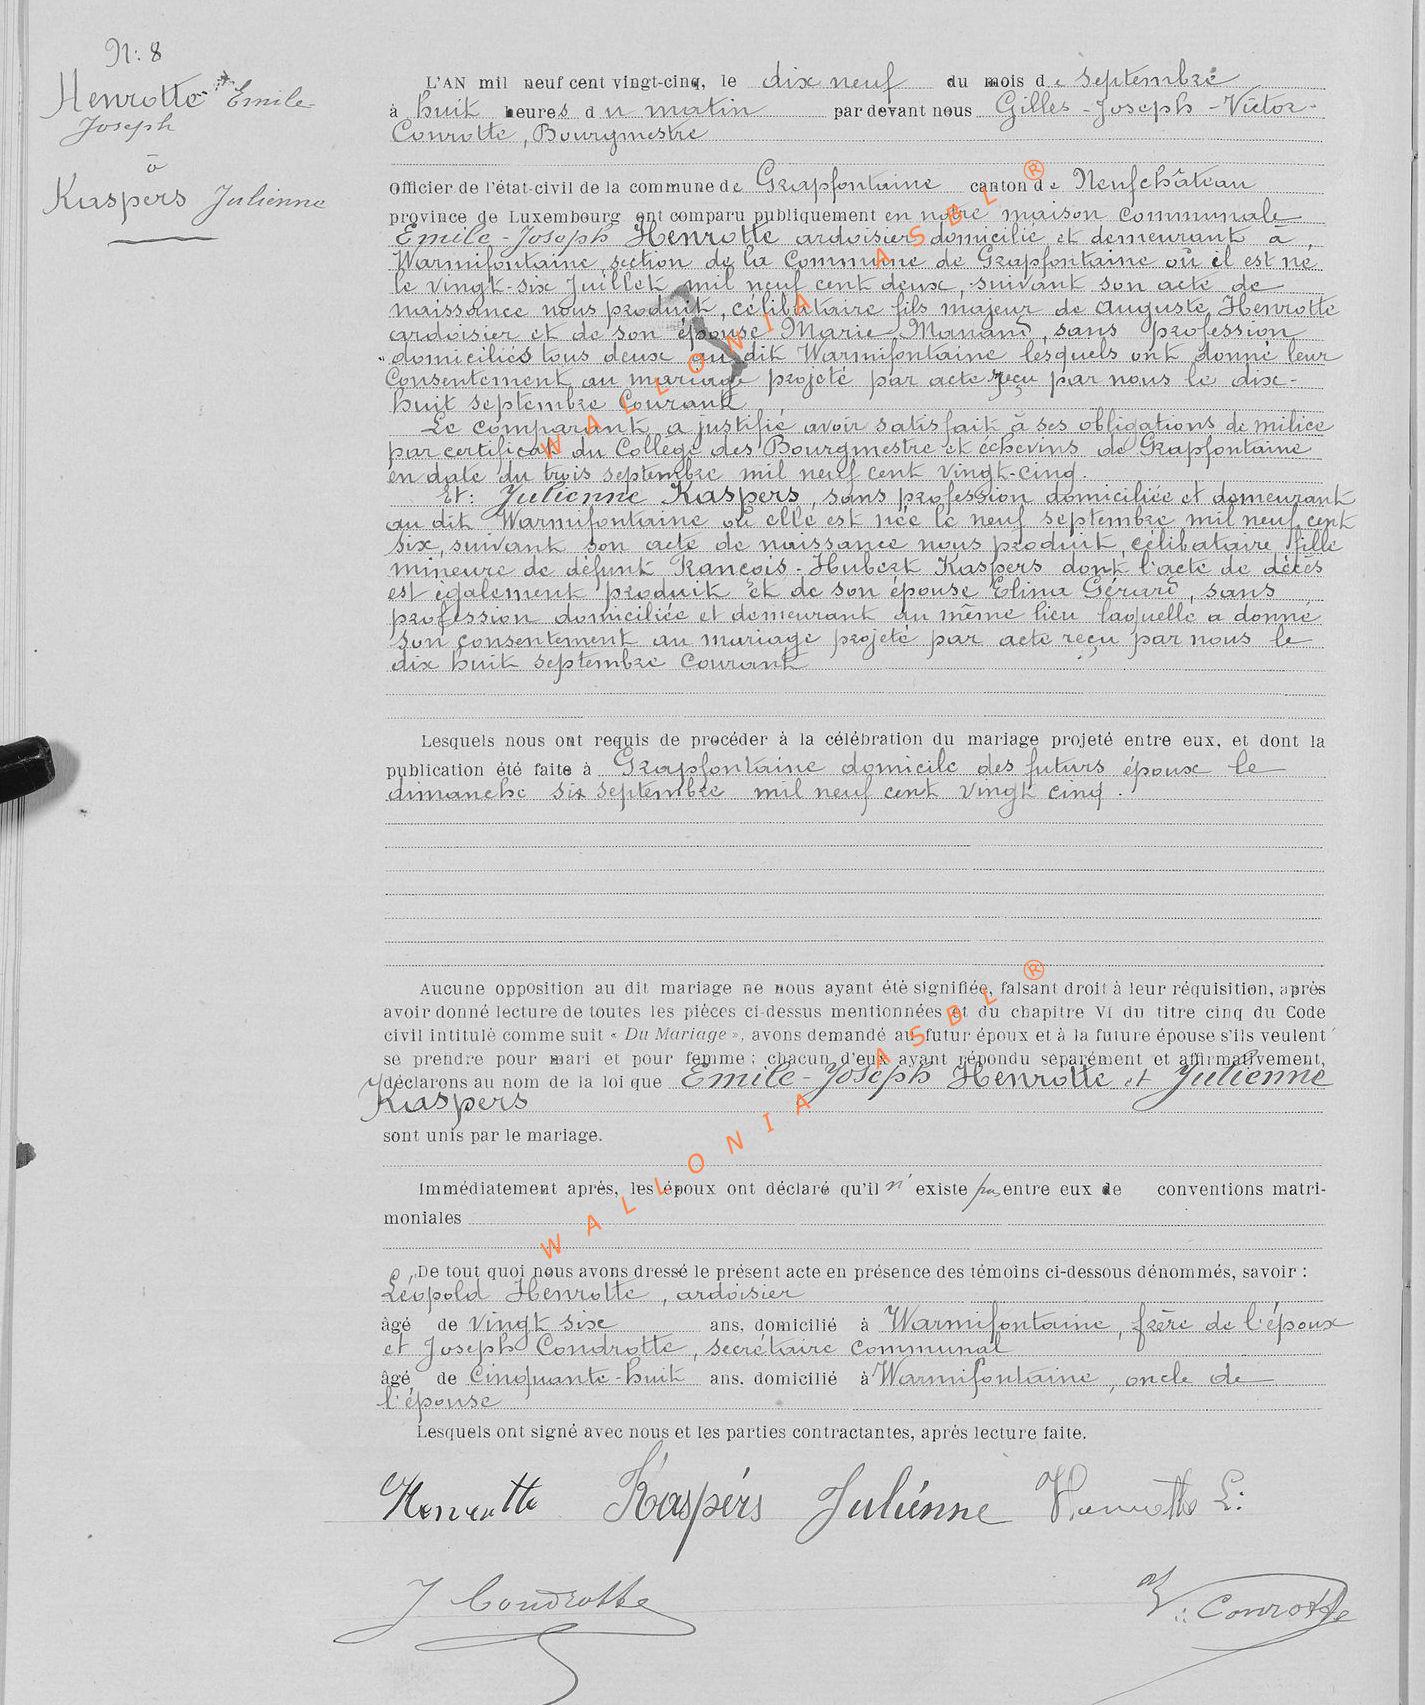 N: 8
Henrotte Emile-
Joseph
à
Kaspers Julienne
L'AN mil neuf cent vingt-cinq, le dix neuf du mois de septembre
à huit heures du matin par devant nous Gilles-Joseph-Victor-
Conrotte, Bourgmestre
Officier de l'état-civil de la commune de Grapfontaine canton de Neufchâteau
province de Luxembourg ont comparu publiquement en notre maison communale
Emile-Joseph Henrotte ardoisier domicilié et demeurant à
Warmifontaine section de la Commune de Grapfontaine où il est né
le vingt-six Juillet mil neuf cent deux, suivant son acte de
naissance nous produit, célibataire fils majeur de Auguste Henrotte
ardoisier et de son épouse Marie Manand, sans profession
domiciliés tous deux au dit Warmifontaine lesquels ont donné leur
Consentement au mariage projeté par acte reçu par nous le dix-
huit septembre Courant
Le comparant a justifié avoir satisfait à ses obligations de milice
par certificat du Collège des Bourgmestre et échevins de Grapfontaine
en date du trois septembre mil neuf cent vingt-cinq.
Et: Julienne Kaspers, sans profession domiciliée et demeurant
au dit Warmifontaine où elle est née le neuf septembre mil neuf cent
six, suivant son acte de naissance nous produit, célibataire, fille
mineure de défunt Rançois-Hubert Kaspers dont l'acte de décès
est également produit et de son épouse Elina Gérard, sans
profession domiciliée et demeurant au même lieu laquelle a donné
son consentement au mariage projeté par acte reçu par nous le
dix huit septembre courant
Lesquels nous ont requis de procéder à la célébration du mariage projeté entre eux, et dont la
publication été faite à Grapfontaine domicile des futurs époux le
dimanche six septembre mil neuf cent vingt cinq.
Aucune opposition au dit mariage ne nous ayant été signifiée, faisant droit à leur réquisition, après
avoir donné lecture de toutes les pièces ci-dessus mentionnées et du chapitre VI du titre cinq du Code
civil intitulé comme suit « Du Mariage », avons demandé au futur époux et à la future épouse s'ils veulent
se prendre pour mari et pour femme ; chacun d'eux ayant répondu séparément et affirmativement,
déclarons au nom de la loi que Emile-Joseph Henrotte et Julienne
Kaspers
sont unis par le mariage.
Immédiatement après, les époux ont déclaré qu'il n'existe pas entre eux de conventions matri-
moniales
De tout quoi nous avons dressé le présent acte en présence des témoins ci-dessous dénommés, savoir :
Léopold Henrotte, ardoisier
âgé de vingt six ans, domicilié à Warmifontaine, frère de l'époux
et Joseph Condrotte, secrétaire communal
âgé de Cinquante-huit ans. domicilié à Warmifontaine, oncle de
l'épouse
Lesquels ont signé avec nous et les parties contractantes, après lecture faite.
Henrotte Kaspérs Juliénne Henrotte L:
J Condrotte V: Conrotte
WALLONIA ASBL ®
WALLONIA ASBL ®